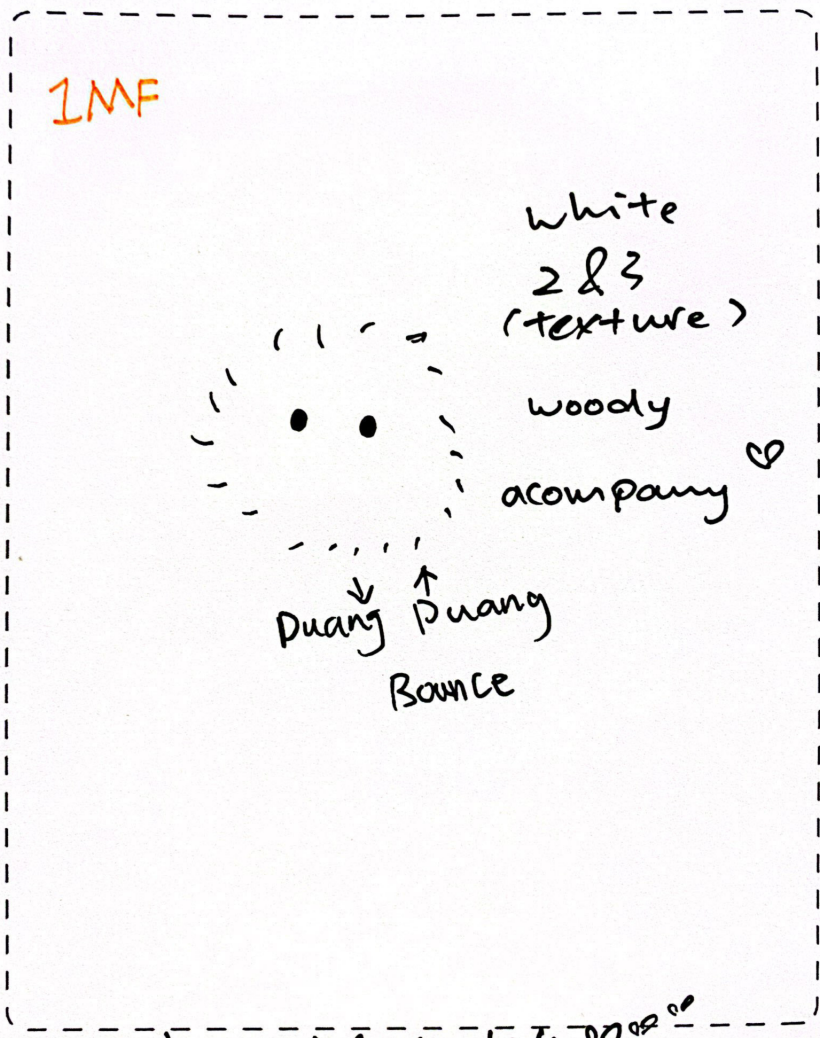 1MF
white
2 & 3
(texture)
woody
acompany
Duang Duang
Bounce